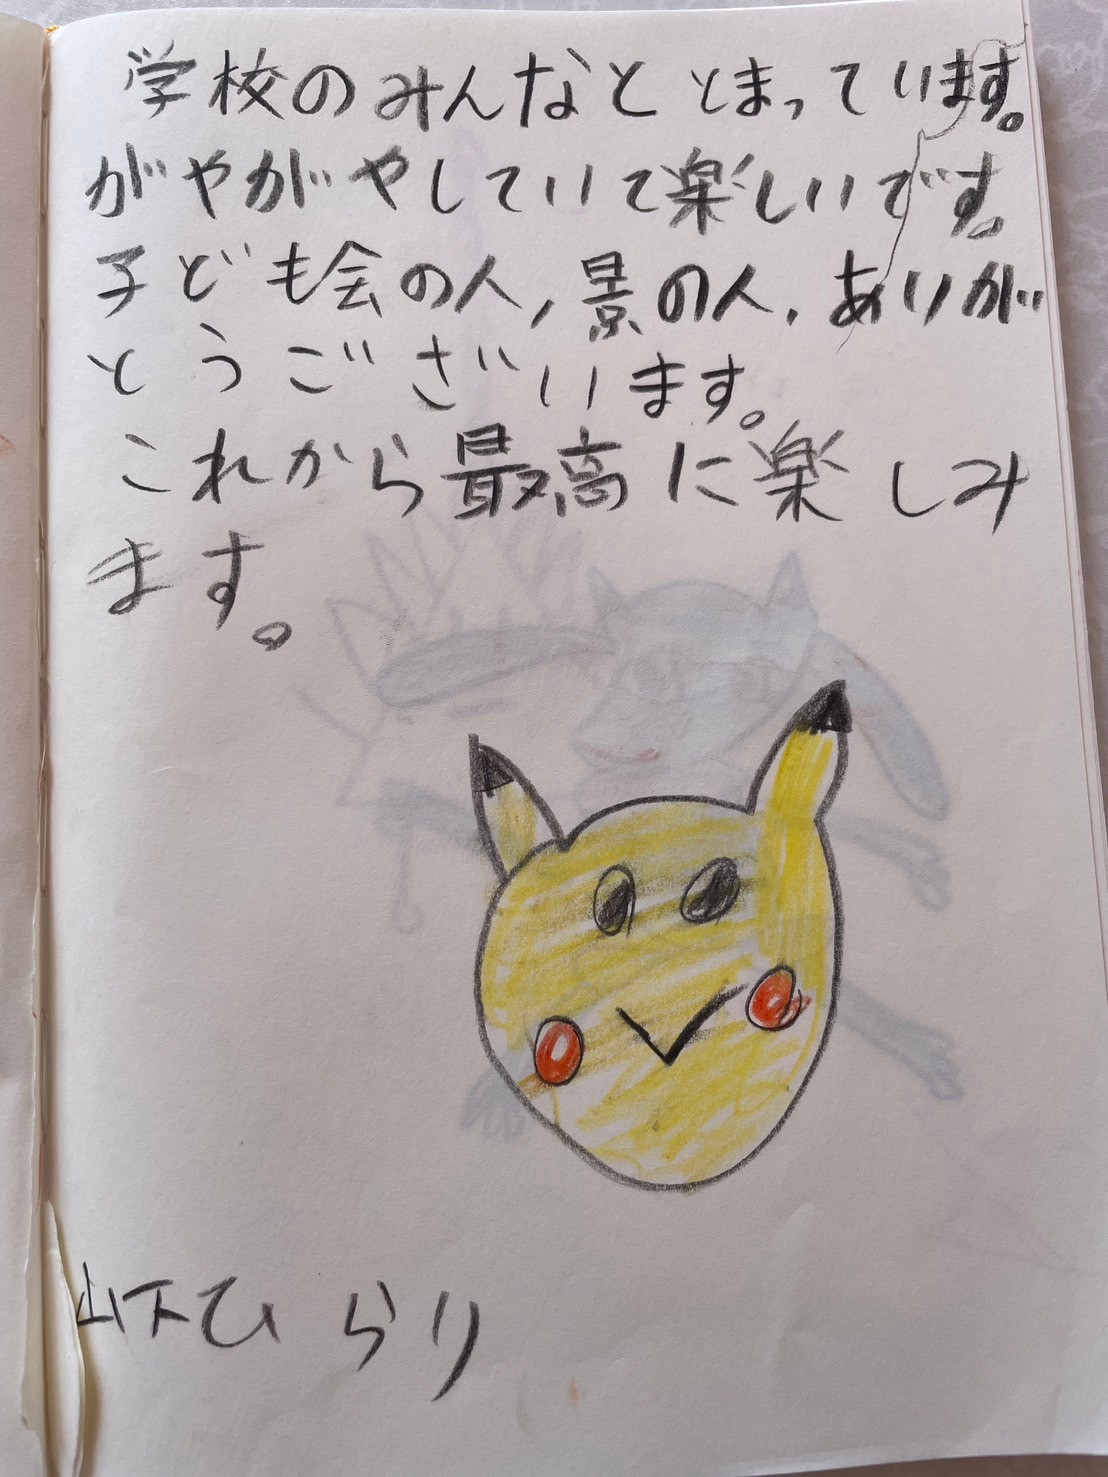 学校のみんなととまっています。
がやがやしていて楽しいです。
子ども会の人、景の人、ありが
とうございます。
これから最高に楽しみ
ます。
山下ひらり